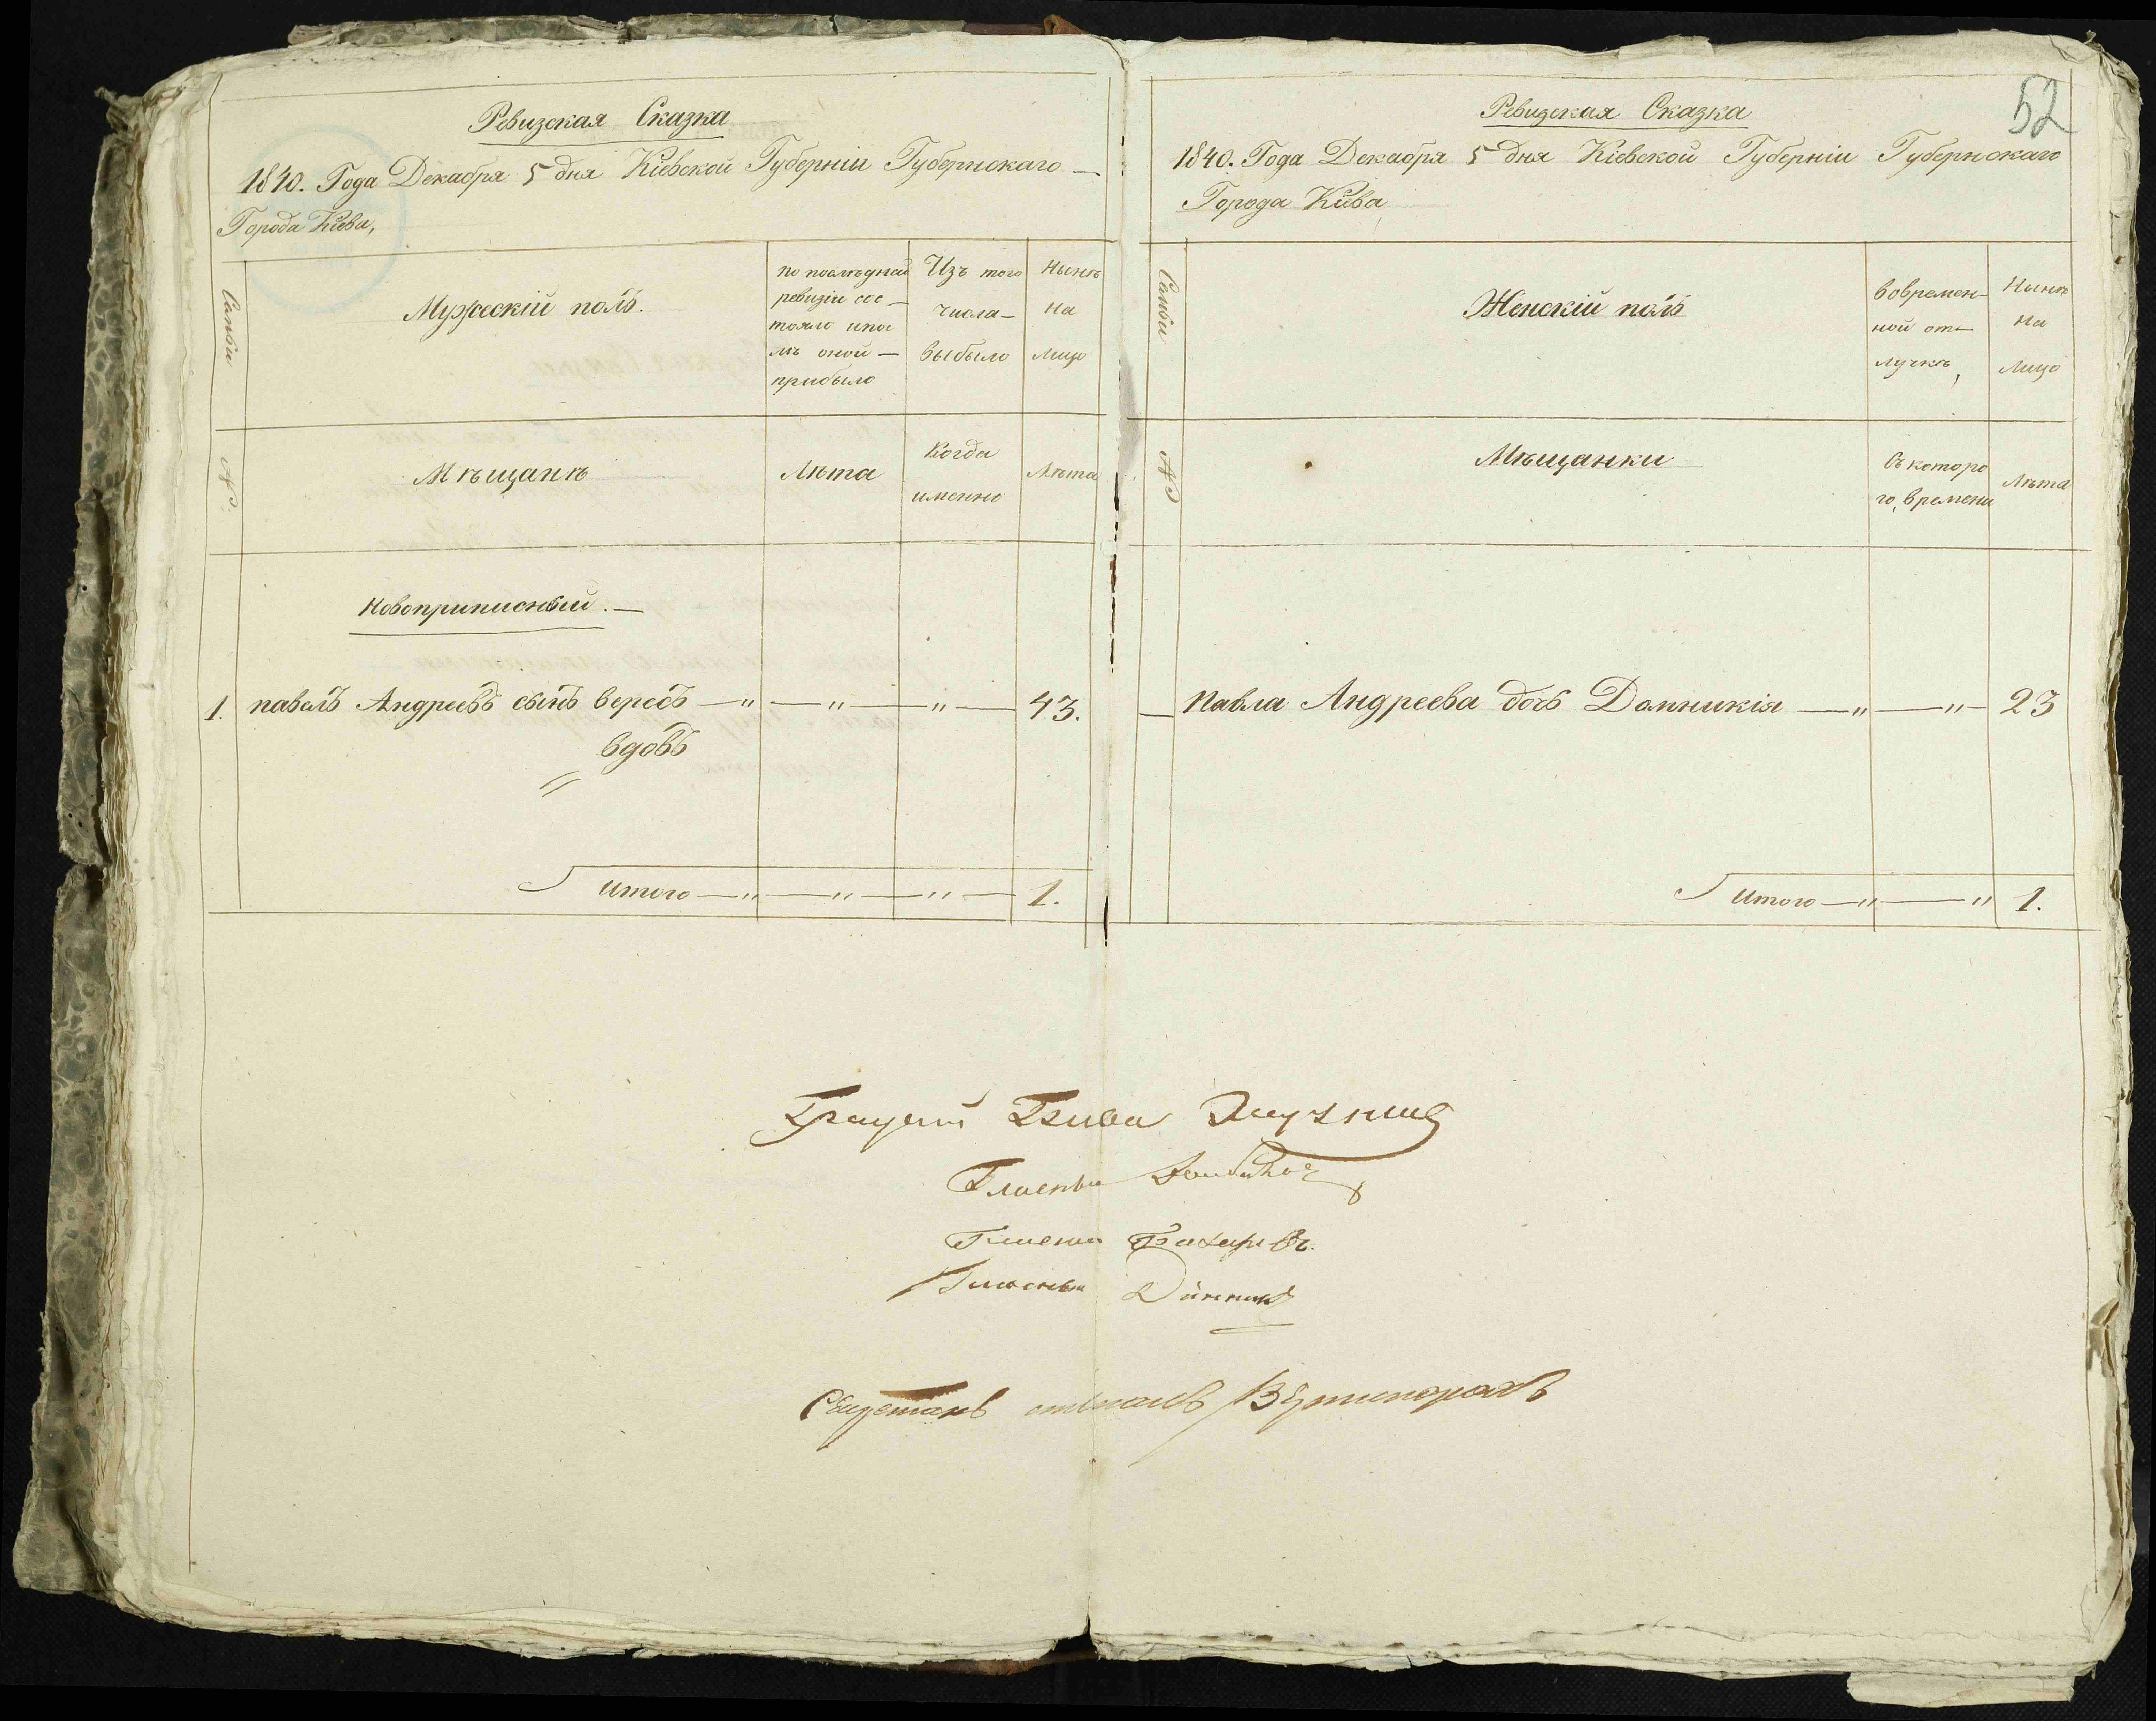 Ревизская Сказка
1840. Года Декабря 5 дня Кіевской Губерніи Губернскаго —
Города Кіева,
Семьи
Мужескій полъ.
по послѣдней
ревизіи сос-
тояло и пос
лѣ оной —
прибыло
Изъ того
числа —
выбыло
Нынѣ
На
Лицо
№
Мѣщанѣ
Лѣта
Когда
именно
Лѣта
Новоприписный. —
1. павелъ Андреевъ сынъ вересъ — „ — „ — „ — 43.
вдовъ
Итого — „ — „ — „ — 1.
52
Ревизская Сказка
1840. Года Декабря 5 дня Кіевской Губерніи Губернскаго
Города Кіева
Семьи
Женскій полъ
вовремен-
ной от-
лучкѣ,
Нынѣ
На
Лицо
№
Мѣщанки
Съ которо
го, времени
Лѣта
— Павла Андреева дочь Домникія — „ — „ — 23
Итого — „ — „ 1.
Гласный
Гласный
Гласный Динникъ